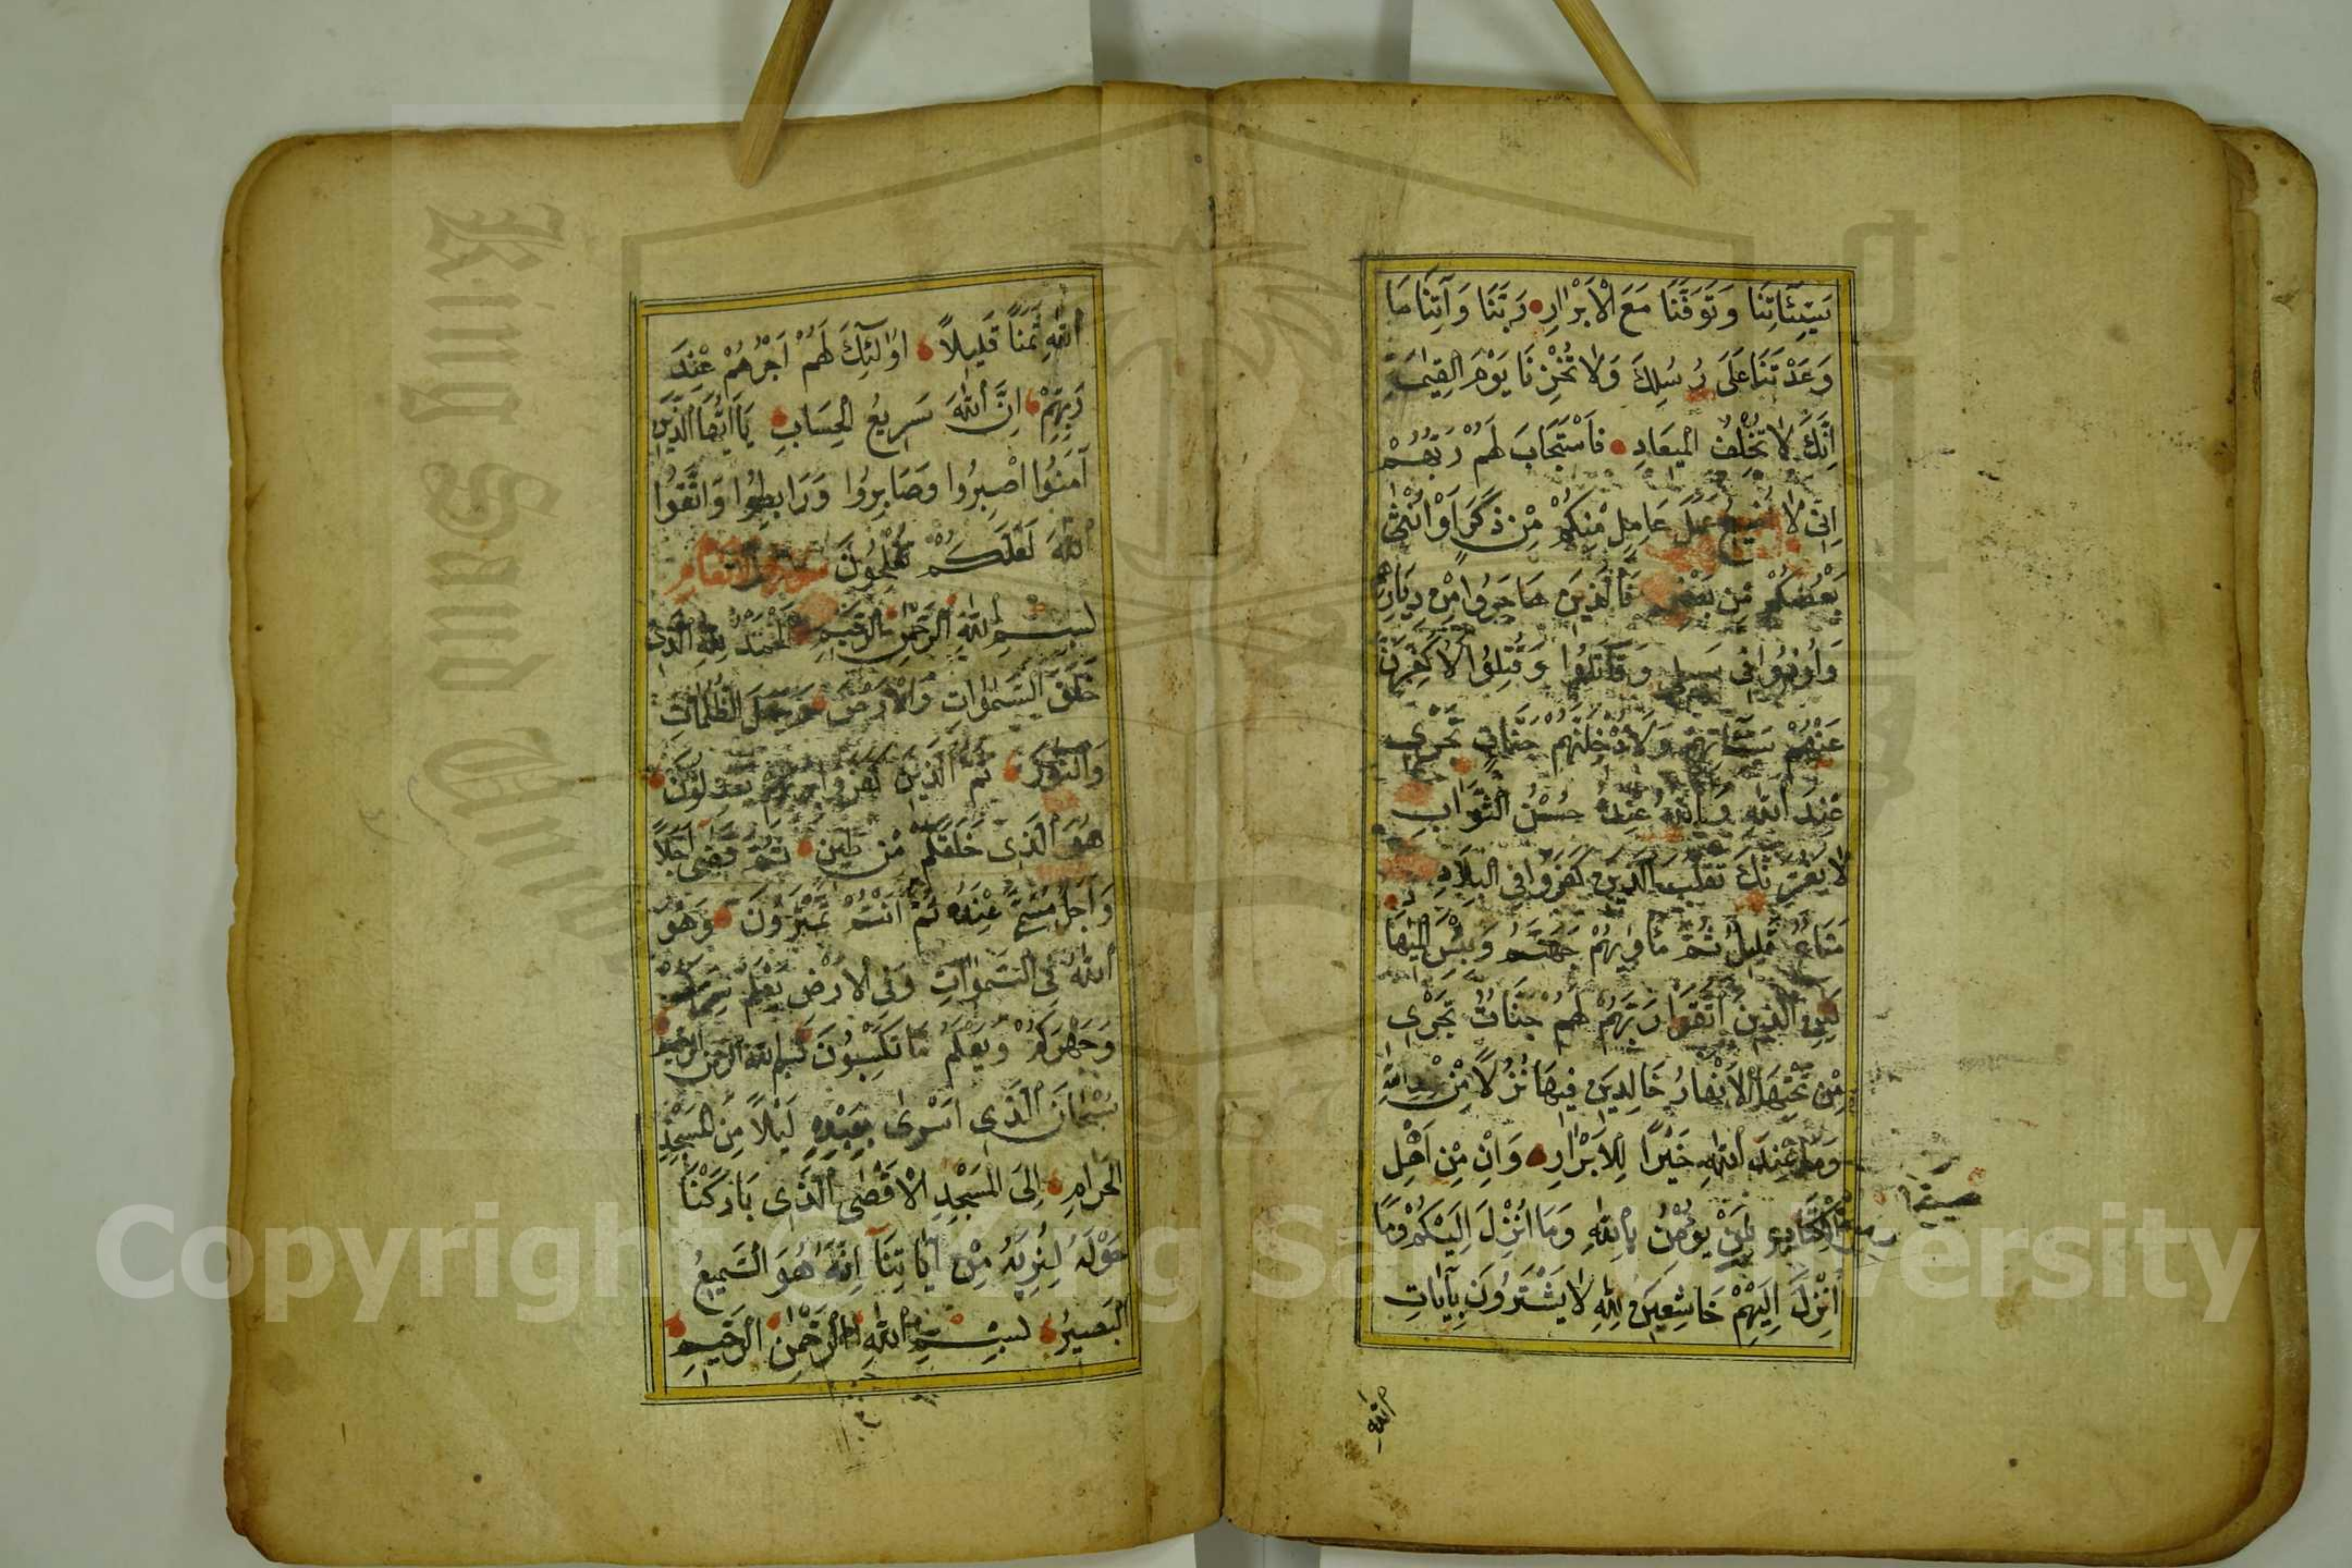 سَيِّئَاتِنَا وَتَوَفَّنَا مَعَ الْاَبْرَارِ رَبَّنَا وَآتِنَا مَا
وَعَدْتَنَا عَلَى رُسُلِكَ وَلَا تُخْزِنَا يَوْمَ الْقِيٰمَةِ
اِنَّكَ لَا تُخْلِفُ الْمِيعَادِ فَاسْتَجَابَ لَهُمْ رَبُّهُمْ
اِنِّي لَا اُضِيعُ عَمَلَ عَامِلٍ مِنْكُمْ مِنْ ذَكَرٍ اَوْ اُنْثٰى
بَعْضُكُمْ مِنْ بَعْضٍ فَالَّذِينَ هَاجَرُوا مِنْ دِيَارِهِمْ
وَاُوذُوا فِي سَبِيلِي وَقَاتَلُوا وَقُتِلُوا لَاُكَفِّرَنَّ
عَنْهُمْ سَيِّئَاتِهِمْ وَلَاُدْخِلَنَّهُمْ جَنَّاتٍ تَجْرِي
عِنْدَ اللهِ وَاللهُ عِنْدَهُ حُسْنُ الثَّوَابِ
لَا يَغُرَّنَّكَ تَقَلُّبُ الَّذِينَ كَفَرُوا فِي الْبِلَادِ
مَتَاعٌ قَلِيلٌ ثُمَّ مَأْوٰيهُمْ جَهَنَّمُ وَبِئْسَ الْمِهَا
لٰكِنِ الَّذِينَ اتَّقَوْا رَبَّهُمْ لَهُمْ جَنَّاتٌ تَجْرِي
مِنْ تَحْتِهَا الْاَنْهَارُ خَالِدِينَ فِيهَا نُزُلًا مِنْ عِنْدِ اللهِ
وَمَا عِنْدَ اللهِ خَيْرًا لِلْاَبْرَارِ وَاِنْ مِنْ اَهْلِ
الْكِتَابِ لَمَنْ يُؤْمِنُ بِاللهِ وَمَا اُنْزِلَ اِلَيْكُمْ وَمَا
اُنْزِلَ اِلَيْهِمْ خَاشِعِينَ لِلهِ لَا يَشْتَرُونَ بِآيَاتِ
اللهِ
اللهِ ثَمَنًا قَلِيلًا اُولٰئِكَ لَهُمْ اَجْرُهُمْ عِنْدَ
رَبِّهِمْ اِنَّ اللهَ سَرِيعُ الْحِسَابِ يَا اَيُّهَا الَّذِينَ
آمَنُوا اصْبِرُوا وَصَابِرُوا وَرَابِطُوا وَاتَّقُوا
اللهَ لَعَلَّكُمْ تُفْلِحُونَ سورة الانعام
بِسْمِ اللهِ الرَّحْمٰنِ الرَّحِيمِ اَلْحَمْدُ لِلهِ الَّذِي
خَلَقَ السَّمٰوَاتِ وَالْاَرْضَ وَجَعَلَ الظُّلُمَاتِ
وَالنُّورَ ثُمَّ الَّذِينَ كَفَرُوا بِرَبِّهِمْ يَعْدِلُونَ
هُوَ الَّذِي خَلَقَكُمْ مِنْ طِينٍ ثُمَّ قَضٰى اَجَلًا
وَاَجَلٌ مُسَمًّى عِنْدَهُ ثُمَّ اَنْتُمْ تَمْتَرُونَ وَهُوَ
اللهُ فِي السَّمٰوَاتِ وَفِي الْاَرْضِ يَعْلَمُ سِرَّكُمْ
وَجَهْرَكُمْ وَيَعْلَمُ مَا تَكْسِبُونَ بسم الله الرحمن الرحيم
سُبْحَانَ الَّذِي اَسْرٰى بِعَبْدِهِ لَيْلًا مِنَ الْمَسْجِدِ
الْحَرَامِ اِلَى الْمَسْجِدِ الْاَقْصٰى الَّذِي بَارَكْنَا
حَوْلَهُ لِنُرِيَهُ مِنْ آيَاتِنَا اِنَّهُ هُوَ السَّمِيعُ
الْبَصِيرُ بِسْمِ اللهِ الرَّحْمٰنِ الرَّحِيمِ
King Saud University
Copyright © King Saud University